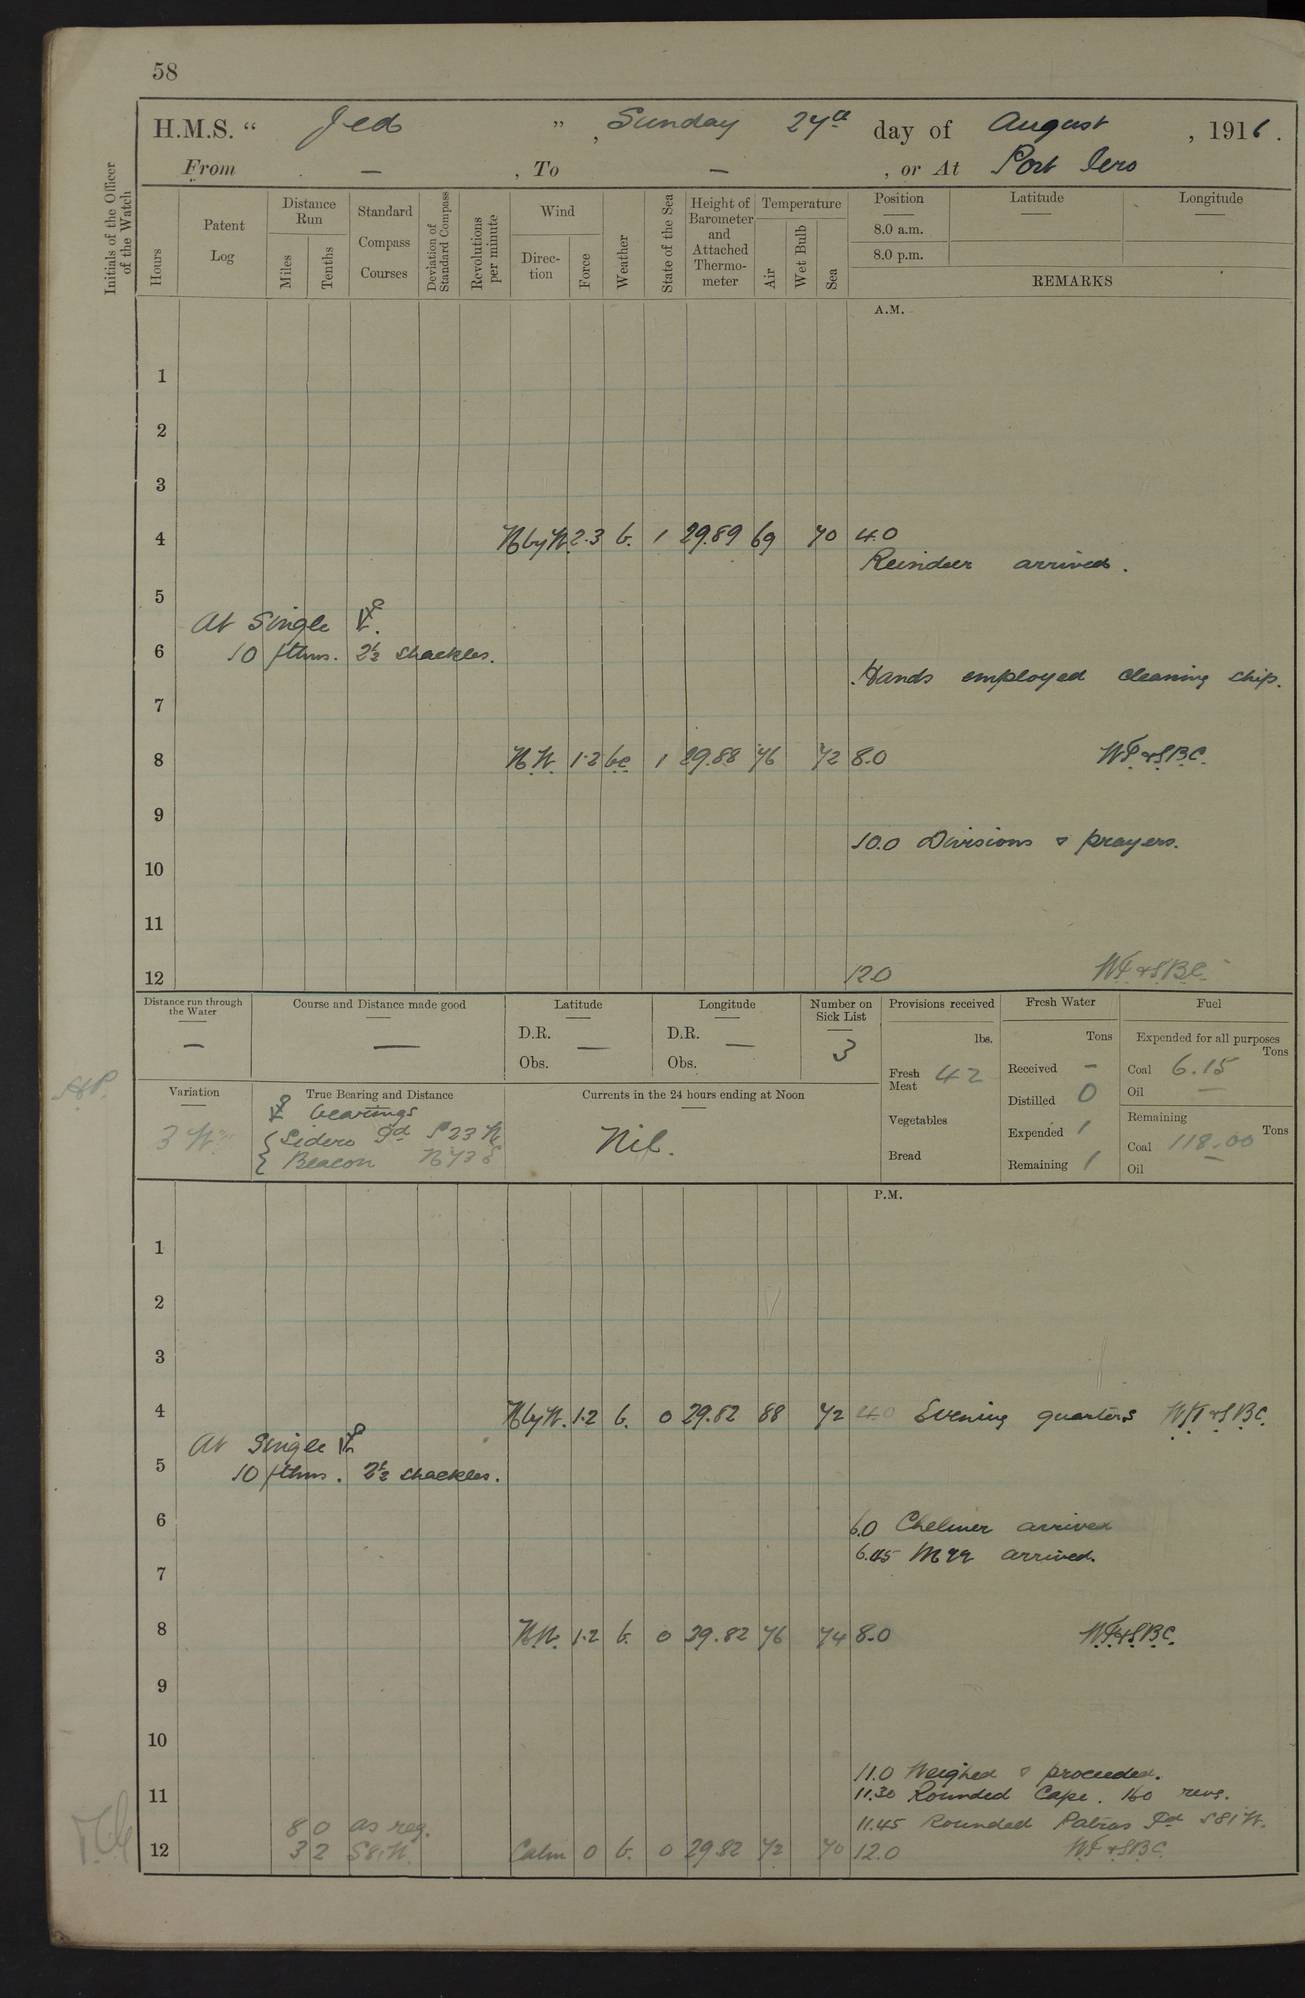 58
H.M.S. “ Jed ” , Sunday 27th day of August , 1916 .
From — , To — , or At Port Iero
Initials of the Officer of the Watch
Hours
Patent Log
Distance Run
Miles
Tenths
Standard Compass Courses
Deviation of Standard Compass
Revolutions per minute
Wind
Direction
Force
Weather
State of the Sea
Height of Barometer and Attached Thermometer
Temperature
Air
Wet Bulb
Sea
Position
8.0 a.m.
8.0 p.m.
Latitude
Longitude
REMARKS
A.M.
1
2
3
4 N by W. 2.3 b. 1 29.89 69 70 4.0
Reindeer arrived.
5
At Single
6 10 fthms. 2½ shackles.
Hands employed cleaning ship.
7
8 N.W. 1.2 bc 1 29.88 76 72 8.0 WF&SBC.
9
10.0 Divisions & prayers.
10
11
12 12.0 WF&SBC.
Distance run through the Water
—
Course and Distance made good
—
Latitude
D.R.
Obs. —
Longitude
D.R.
Obs. —
Number on Sick List
3
Provisions received
lbs.
Fresh Meat 42
Vegetables
Bread
Fresh Water
Tons
Received –
Distilled 0
Expended 1
Remaining 1
Fuel
Expended for all purposes
Tons
Coal 6.15
Oil —
Remaining
Tons
Coal 118.00
Oil —
Variation
3 W
True Bearing and Distance
bearings
Sidero Pd S23W
Beacon N73E
Currents in the 24 hours ending at Noon
Nil.
P.M.
1
2
3
4 N by W. 1.2 b. 0 29.82 88 72 4.0 Evening quarters WF&SBC.
At Single
5 10 fthms. 2½ shackles.
6
6.0 Chelmer arrived
6.45 M22 arrived.
7
8 N.W. 1.2 b. 0 29.82 76 74 8.0 WF&SBC.
9
10
11.0 Weighed & proceeded.
11 11.30 Rounded Cape. 160 revs.
8 0 as req. 11.45 Rounded Patros Pd S81W.
12 3 2 S81W Calm 0 b. 0 29.82 72 70 12.0 WF&SBC.